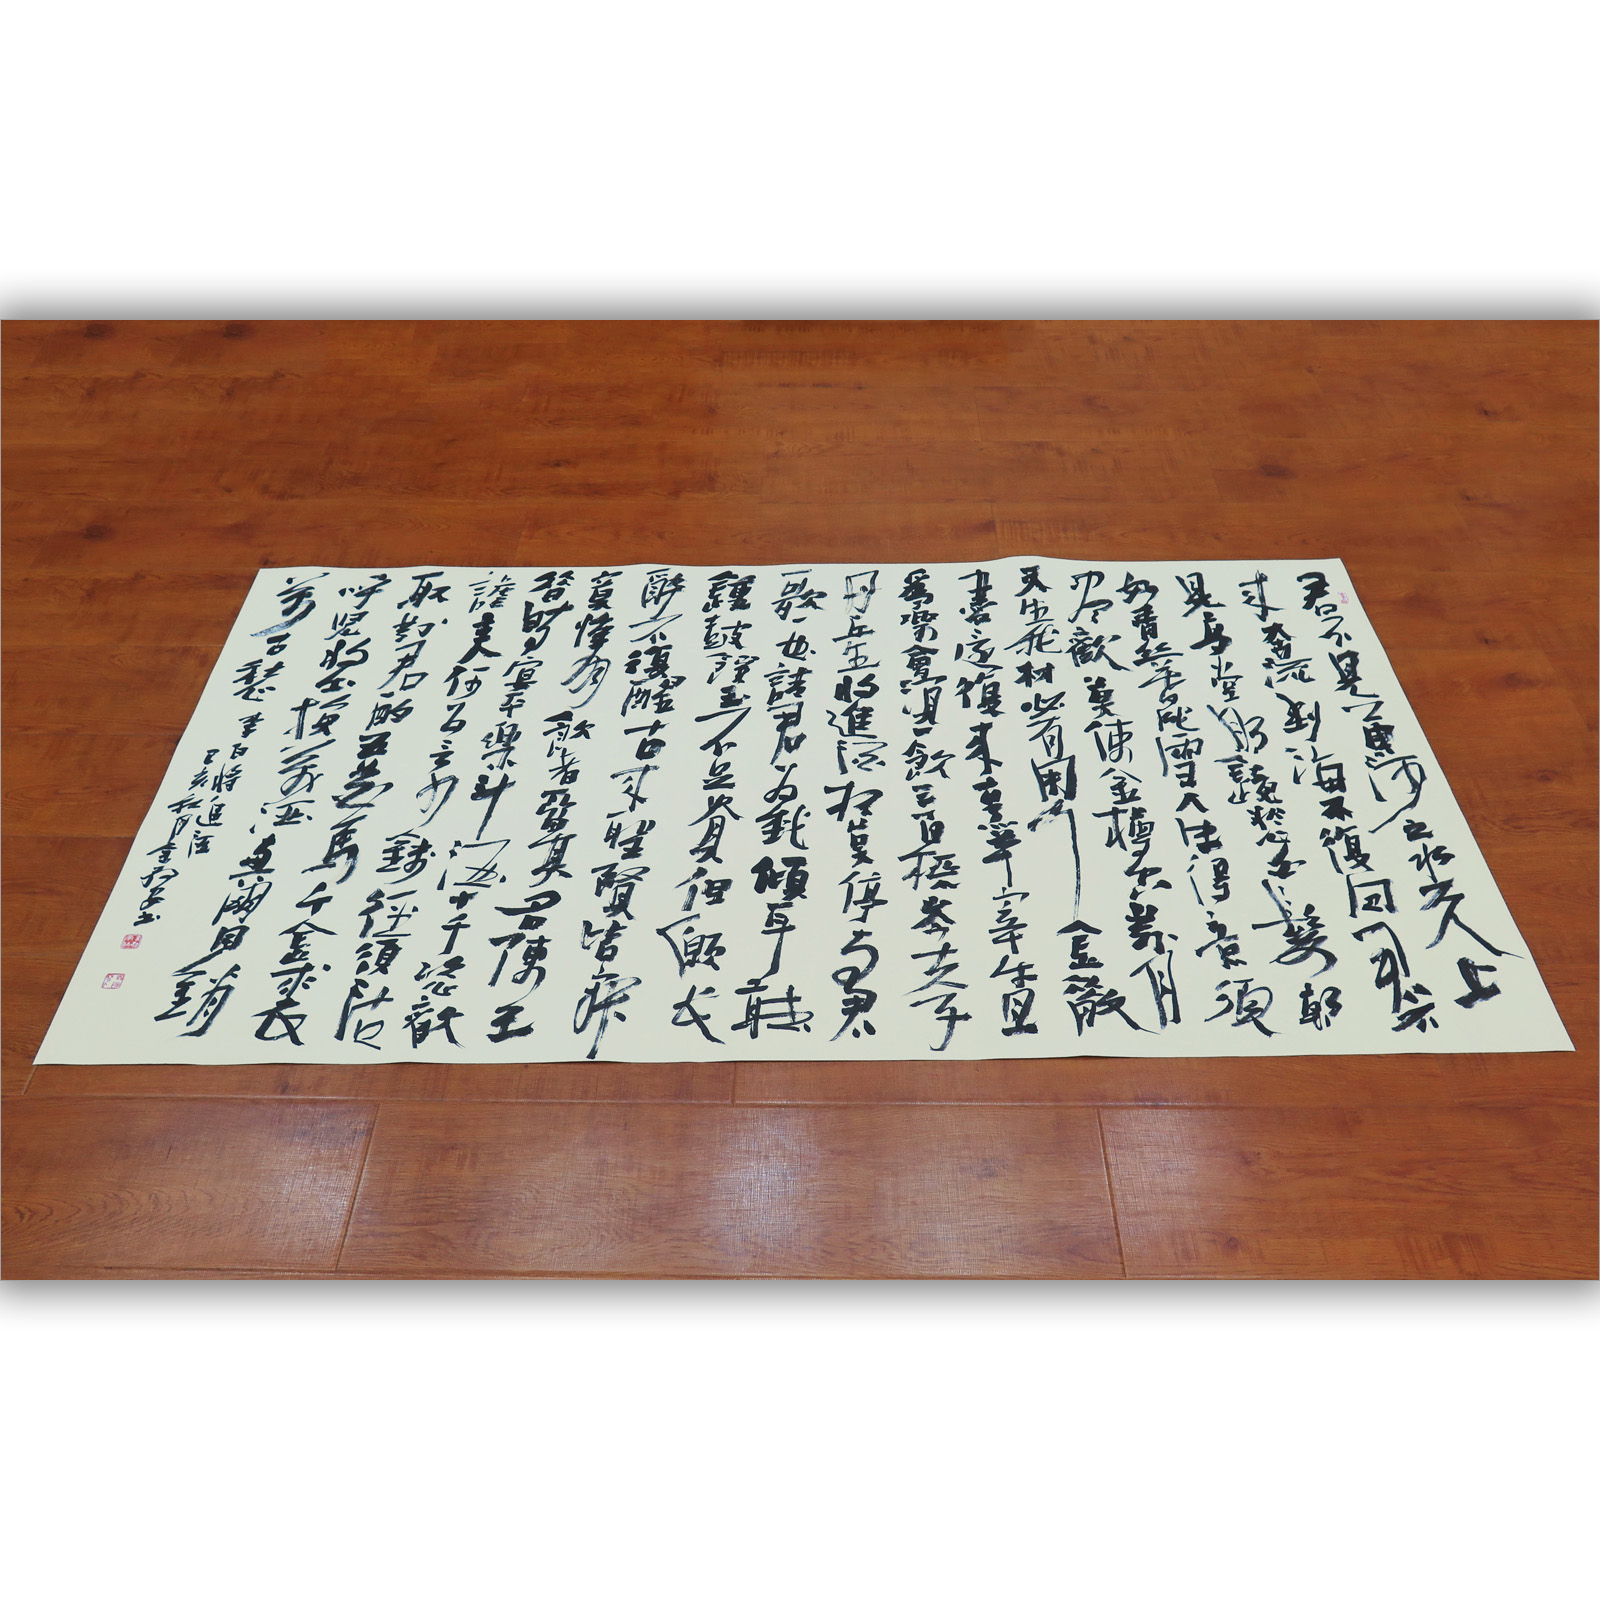 君不見黃河之水天上
来奔流到海不復回君不
見高堂明鏡悲白髮朝
如青絲暮成雪人生得意須
盡歡莫使金樽空對月
天生我材必有用千金散
盡還復来烹羊宰牛且
爲樂會須一飲三百杯岑夫子
丹丘生將進酒杯莫停与君
歌一曲請君为我傾耳聽
鐘鼓饌玉不足貴但願長
醉不復醒古来聖賢皆寂
寞惟有飲者留其名陳王
昔時宴平樂斗酒十千恣歡
謔主人何为言少錢徑須沽
取對君酌五花馬千金裘
呼児将出換美酒与爾同銷
萬古愁李白將進酒
己亥秋月書